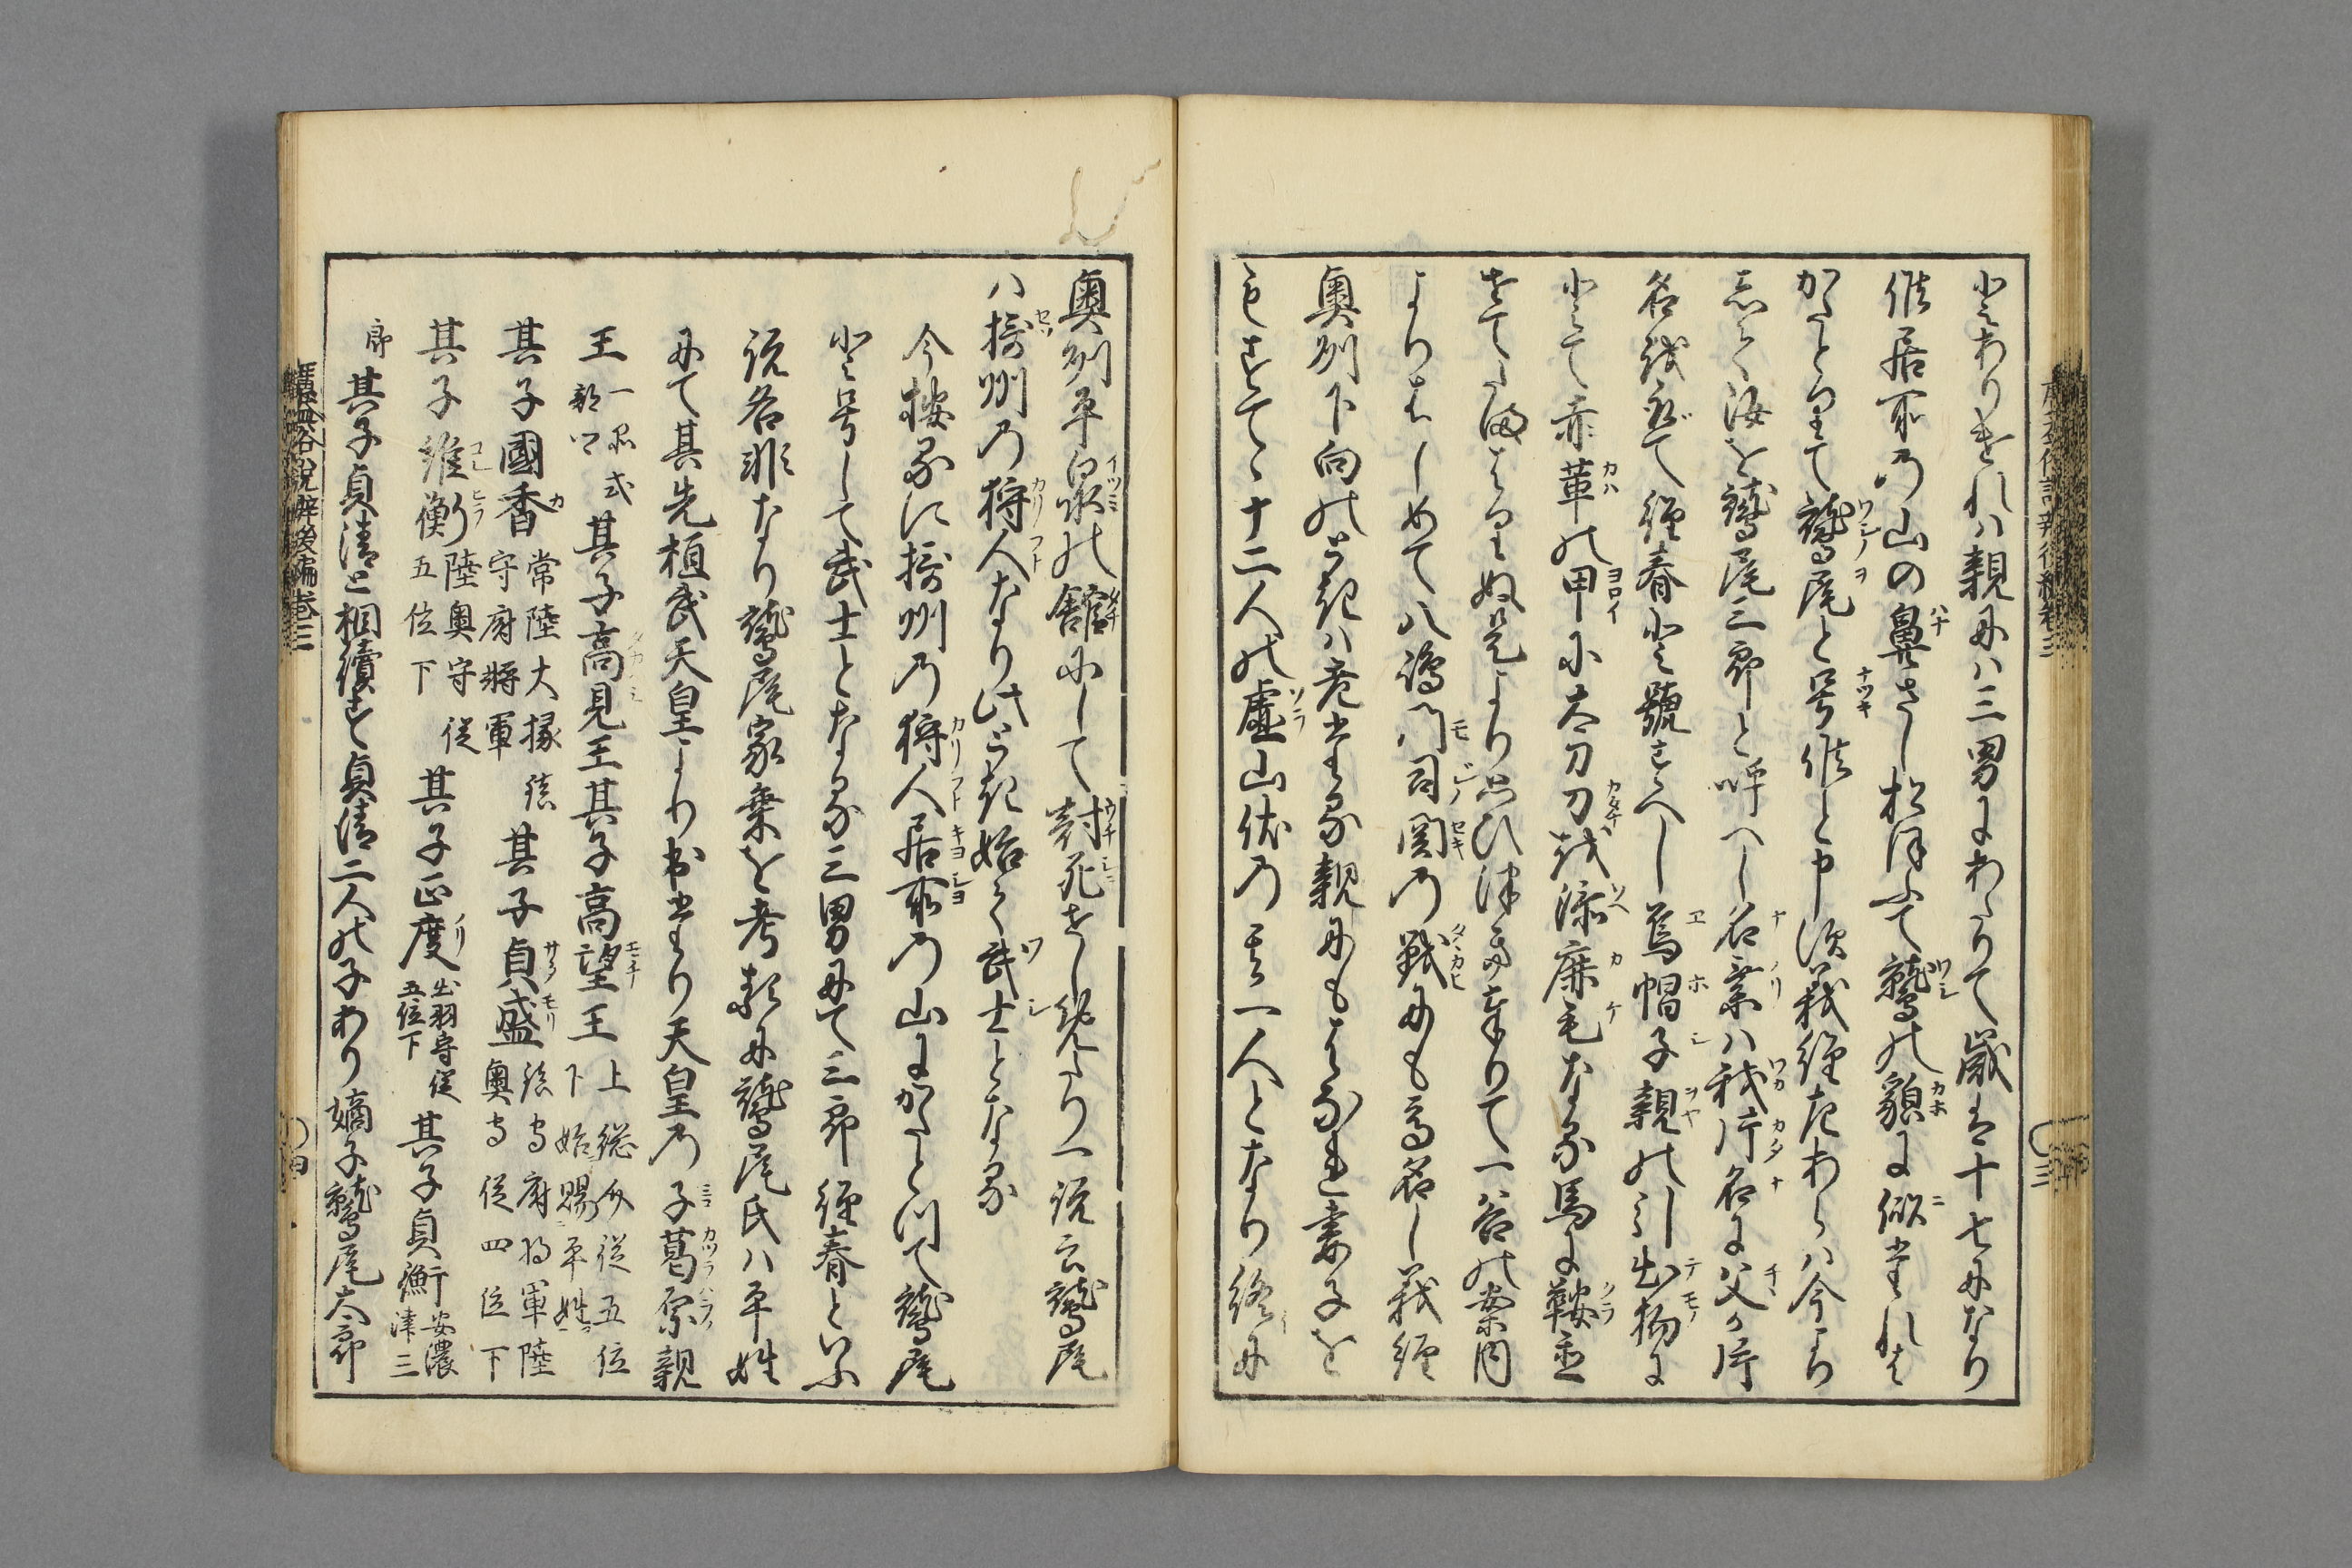 とありけれハ親にハ三男にあたりて歳は十七になり
候居所の山の鼻さし松ほふて鷲の貌に似たれは
かたとりて鷲尾と号候と申須義経左あらハ今より
して汝を鷲尾三郎と呼へし名乗ハ我片名に父か片
名を並て経春と号すへし烏帽子親の引出物に
とて赤革の甲に太刀刀を添鹿毛なる馬に鞍置
てたまはりぬ是より思ひ津き奉りて一谷の案内
よりはしめて八嶋門司関の戦にも高名し義経
奥州下向のとき八老たる親にもはなれ妻子を
もすてゝ十二人の虚山伏の其一人となり終に
奥州平泉の舘にして討死をし侍たり一説云鷲尾
ハ摂州の狩人なり此とき始て武士となる
今按るに摂州の狩人居所の山にかたとつて鷲尾
と号して武士となる三男にて三郎経春といふ
説各非なり鷲尾家乗を考るに鷲尾氏ハ平姓
にて其先桓武天皇より出たり天皇の子葛原親
王一品式部卿其子高見王其子高望王上総介従五位下始賜平姓
其子國香常陸大掾鎮守府将軍其子貞盛鎮守府将軍陸奥守従四位下
其子維衡陸奥守従五位下其子正度出羽守従五位下其子貞衡安濃津三
郎其子貞清と相續す貞清二人の子あり嫡子鷲尾太郎
三
四